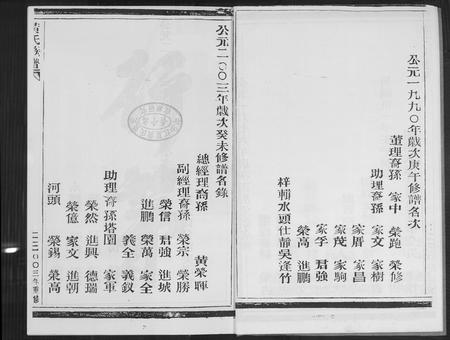 公元一九九〇年歲次庚午修譜名次
董理裔孫 家中 榮跑 榮修
助理裔孫 家文 家樹
家厝 家昌
家茂 家駒
家孚 君強
榮高 進鵬
梓輯水頭仕靜吳逢竹
公元二〇〇三年歲次癸未修譜名錄
總經理裔孫 黃榮暉
副經理裔孫 榮宗 榮勝
榮信 君強 進城
進鵬 榮萬 家全
義全 義釵
助理裔孫塔園 家軍
榮然 進興 德瑞
榮億 家文 進朝
河頭 榮錫 榮高
黃氏族譜
二〇〇三年重修